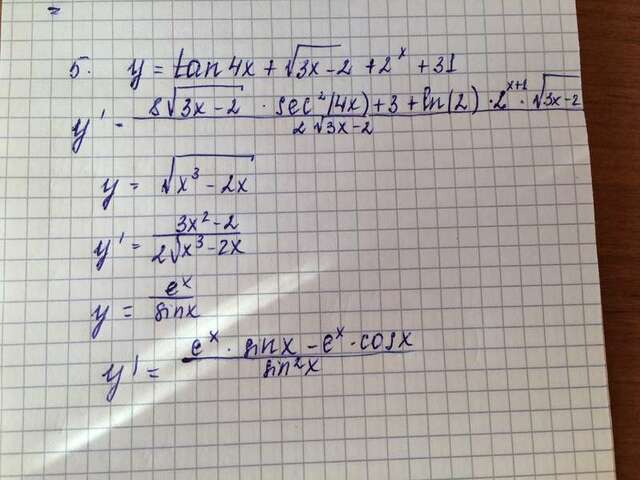 =
5. y = tan 4x + √3x-2 + 2^x + 31
y' = (8√3x-2 · sec²(4x) + 3 + ln(2) · 2^(x+1) · √3x-2) / (2√3x-2)
y = √x³ - 2x
y' = (3x² - 2) / (2√x³ - 2x)
y = e^x / sinx
y' = (e^x · sinx - e^x · cosx) / sin²x